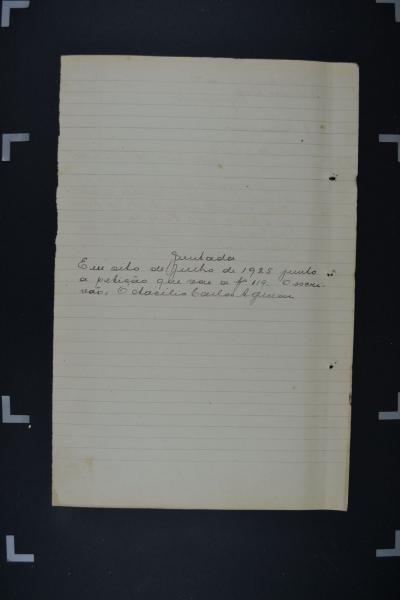 Juntada
Em oito de Julho de 1925 junto
a petição que vae a f 119. O escri-
vão, Carlos